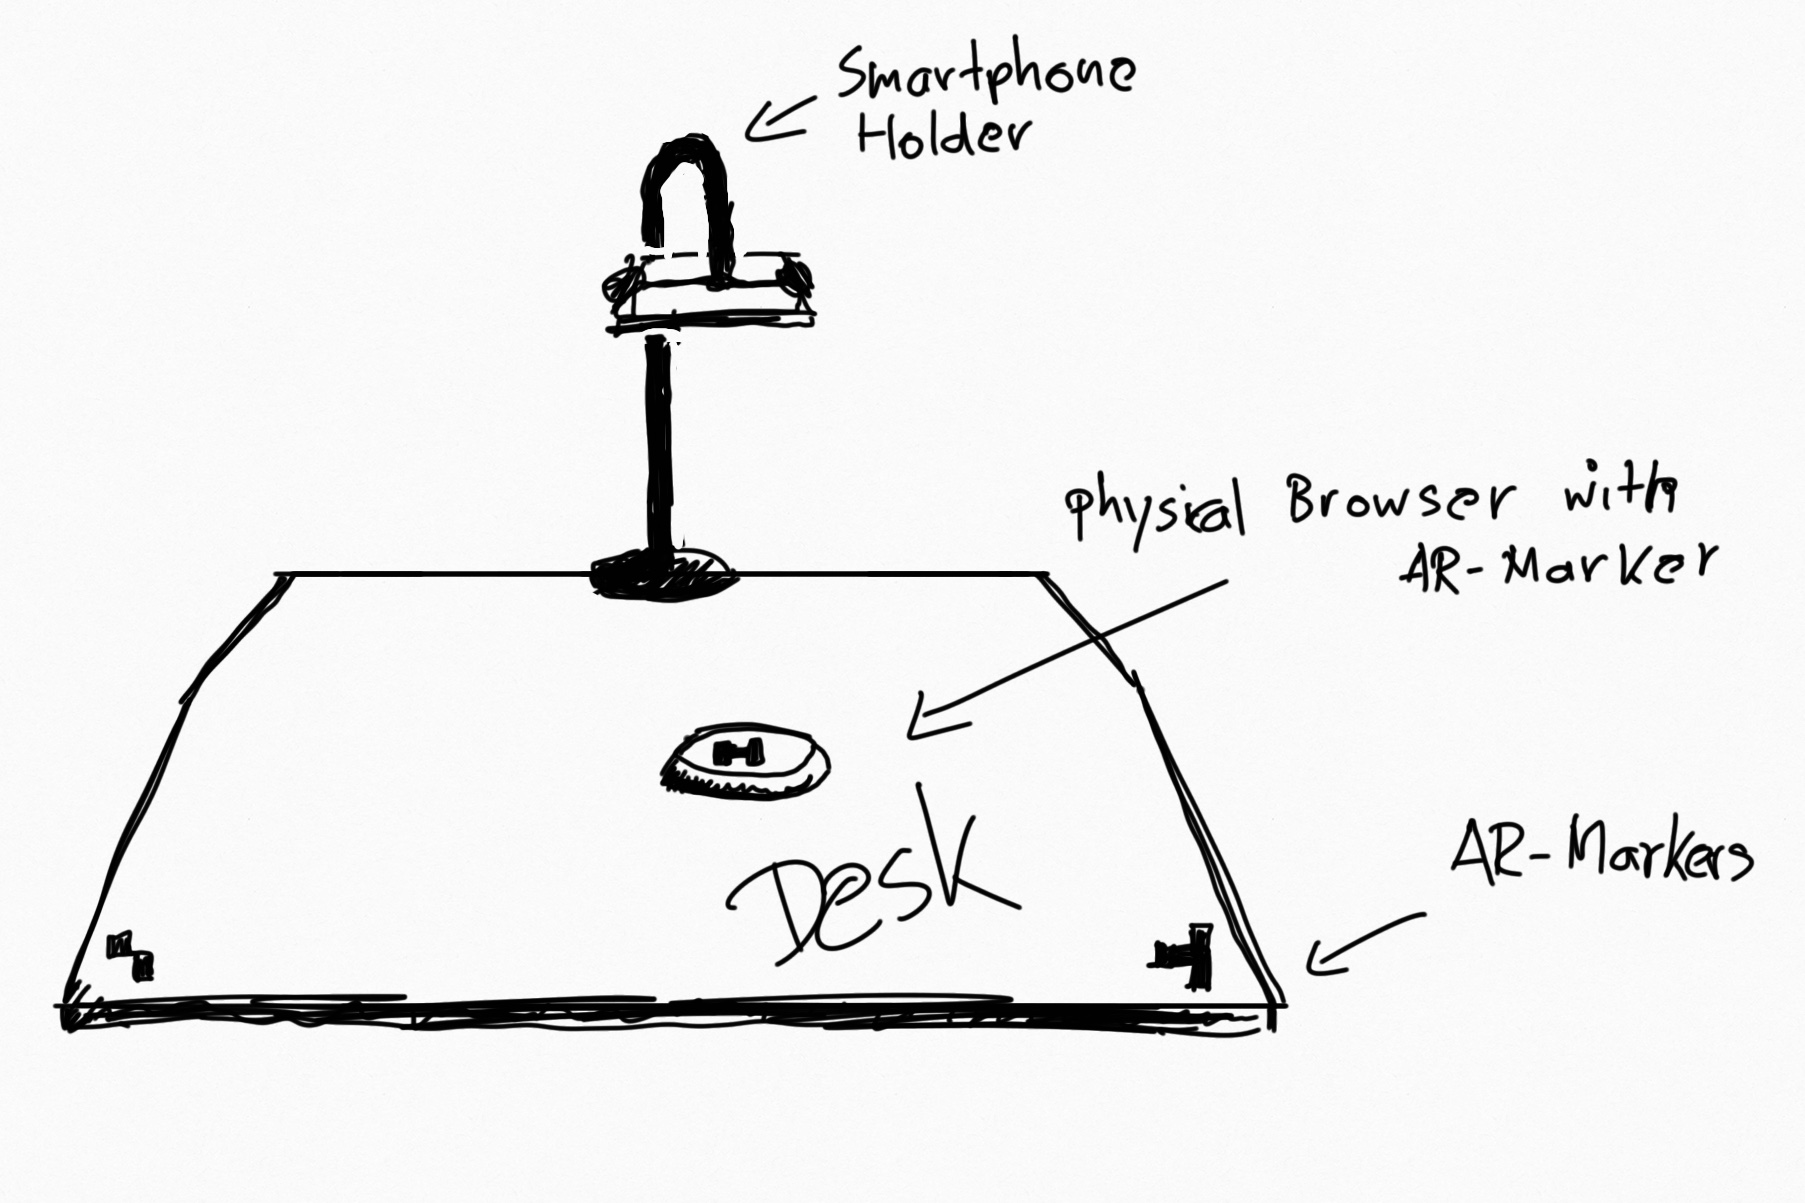 Smartphone
Holder
Physical Browser with
AR-Marker
Desk
AR-Markers